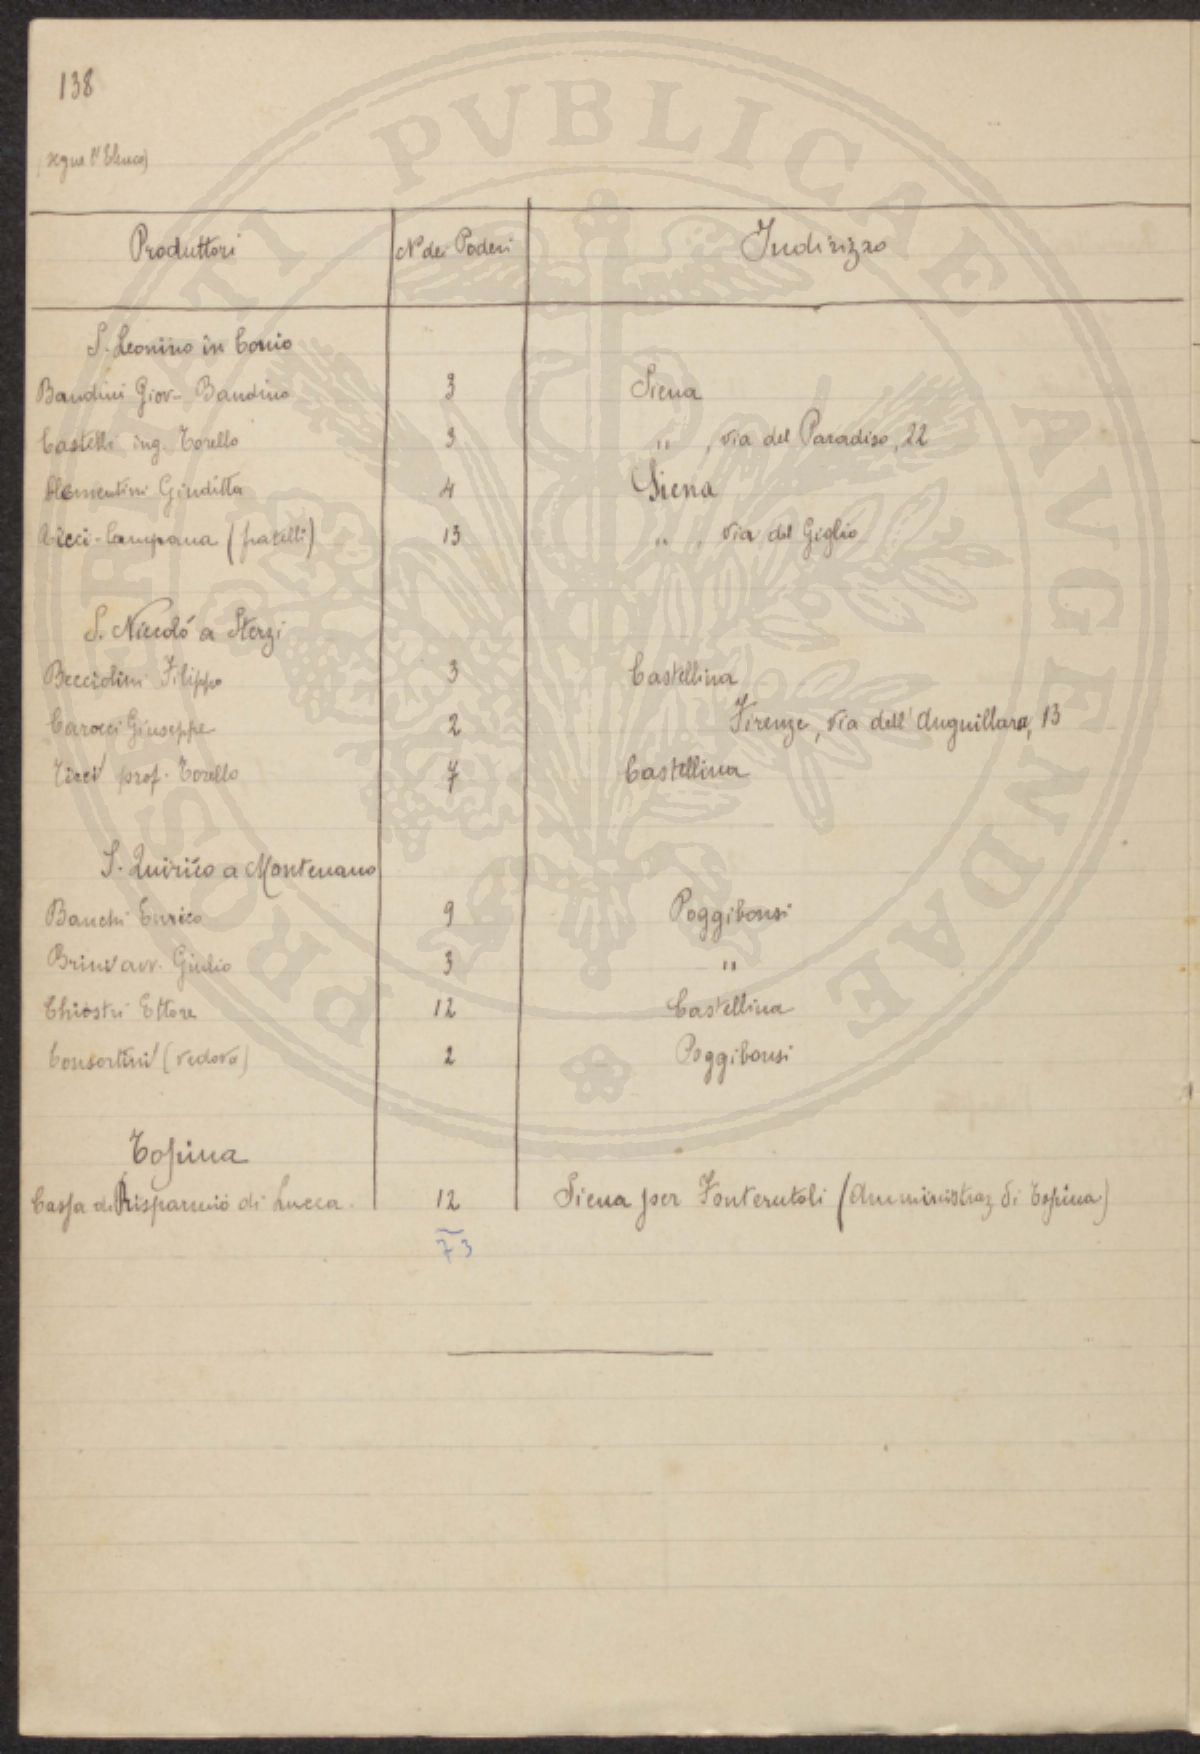 138
(segue l'Elenco)
Produttori N° dei Poderi Indirizzo
S. Leonino in Conio
Bandini Giov- Bandino 3 Siena
Castelli ing. Torello 3 " , via del Paradiso, 22
Clementini Giuditta 4 Siena
Ricci-Campana (fratelli) 13 " , via del Giglio
S. Niccolò a Sterzi
Becciolini Filippo 3 Castellina
Carocci Giuseppe 2 Firenze, via dell'Anguillara, 13
prof. Torello 7 Castellina
S. Quirico a Montenano
Banchi Enrico 9 Poggibonsi
Brini avv. Giulio 3 "
Chiostri Ettore 12 Castellina
Consortini (vedova) 2 Poggibonsi
Topina
Cassa di Risparmio di Lucca. 12 Siena per Fonterutoli (Amministraz di Topina)
73
PROSPERITATI PVBLICAE AVGENDAE